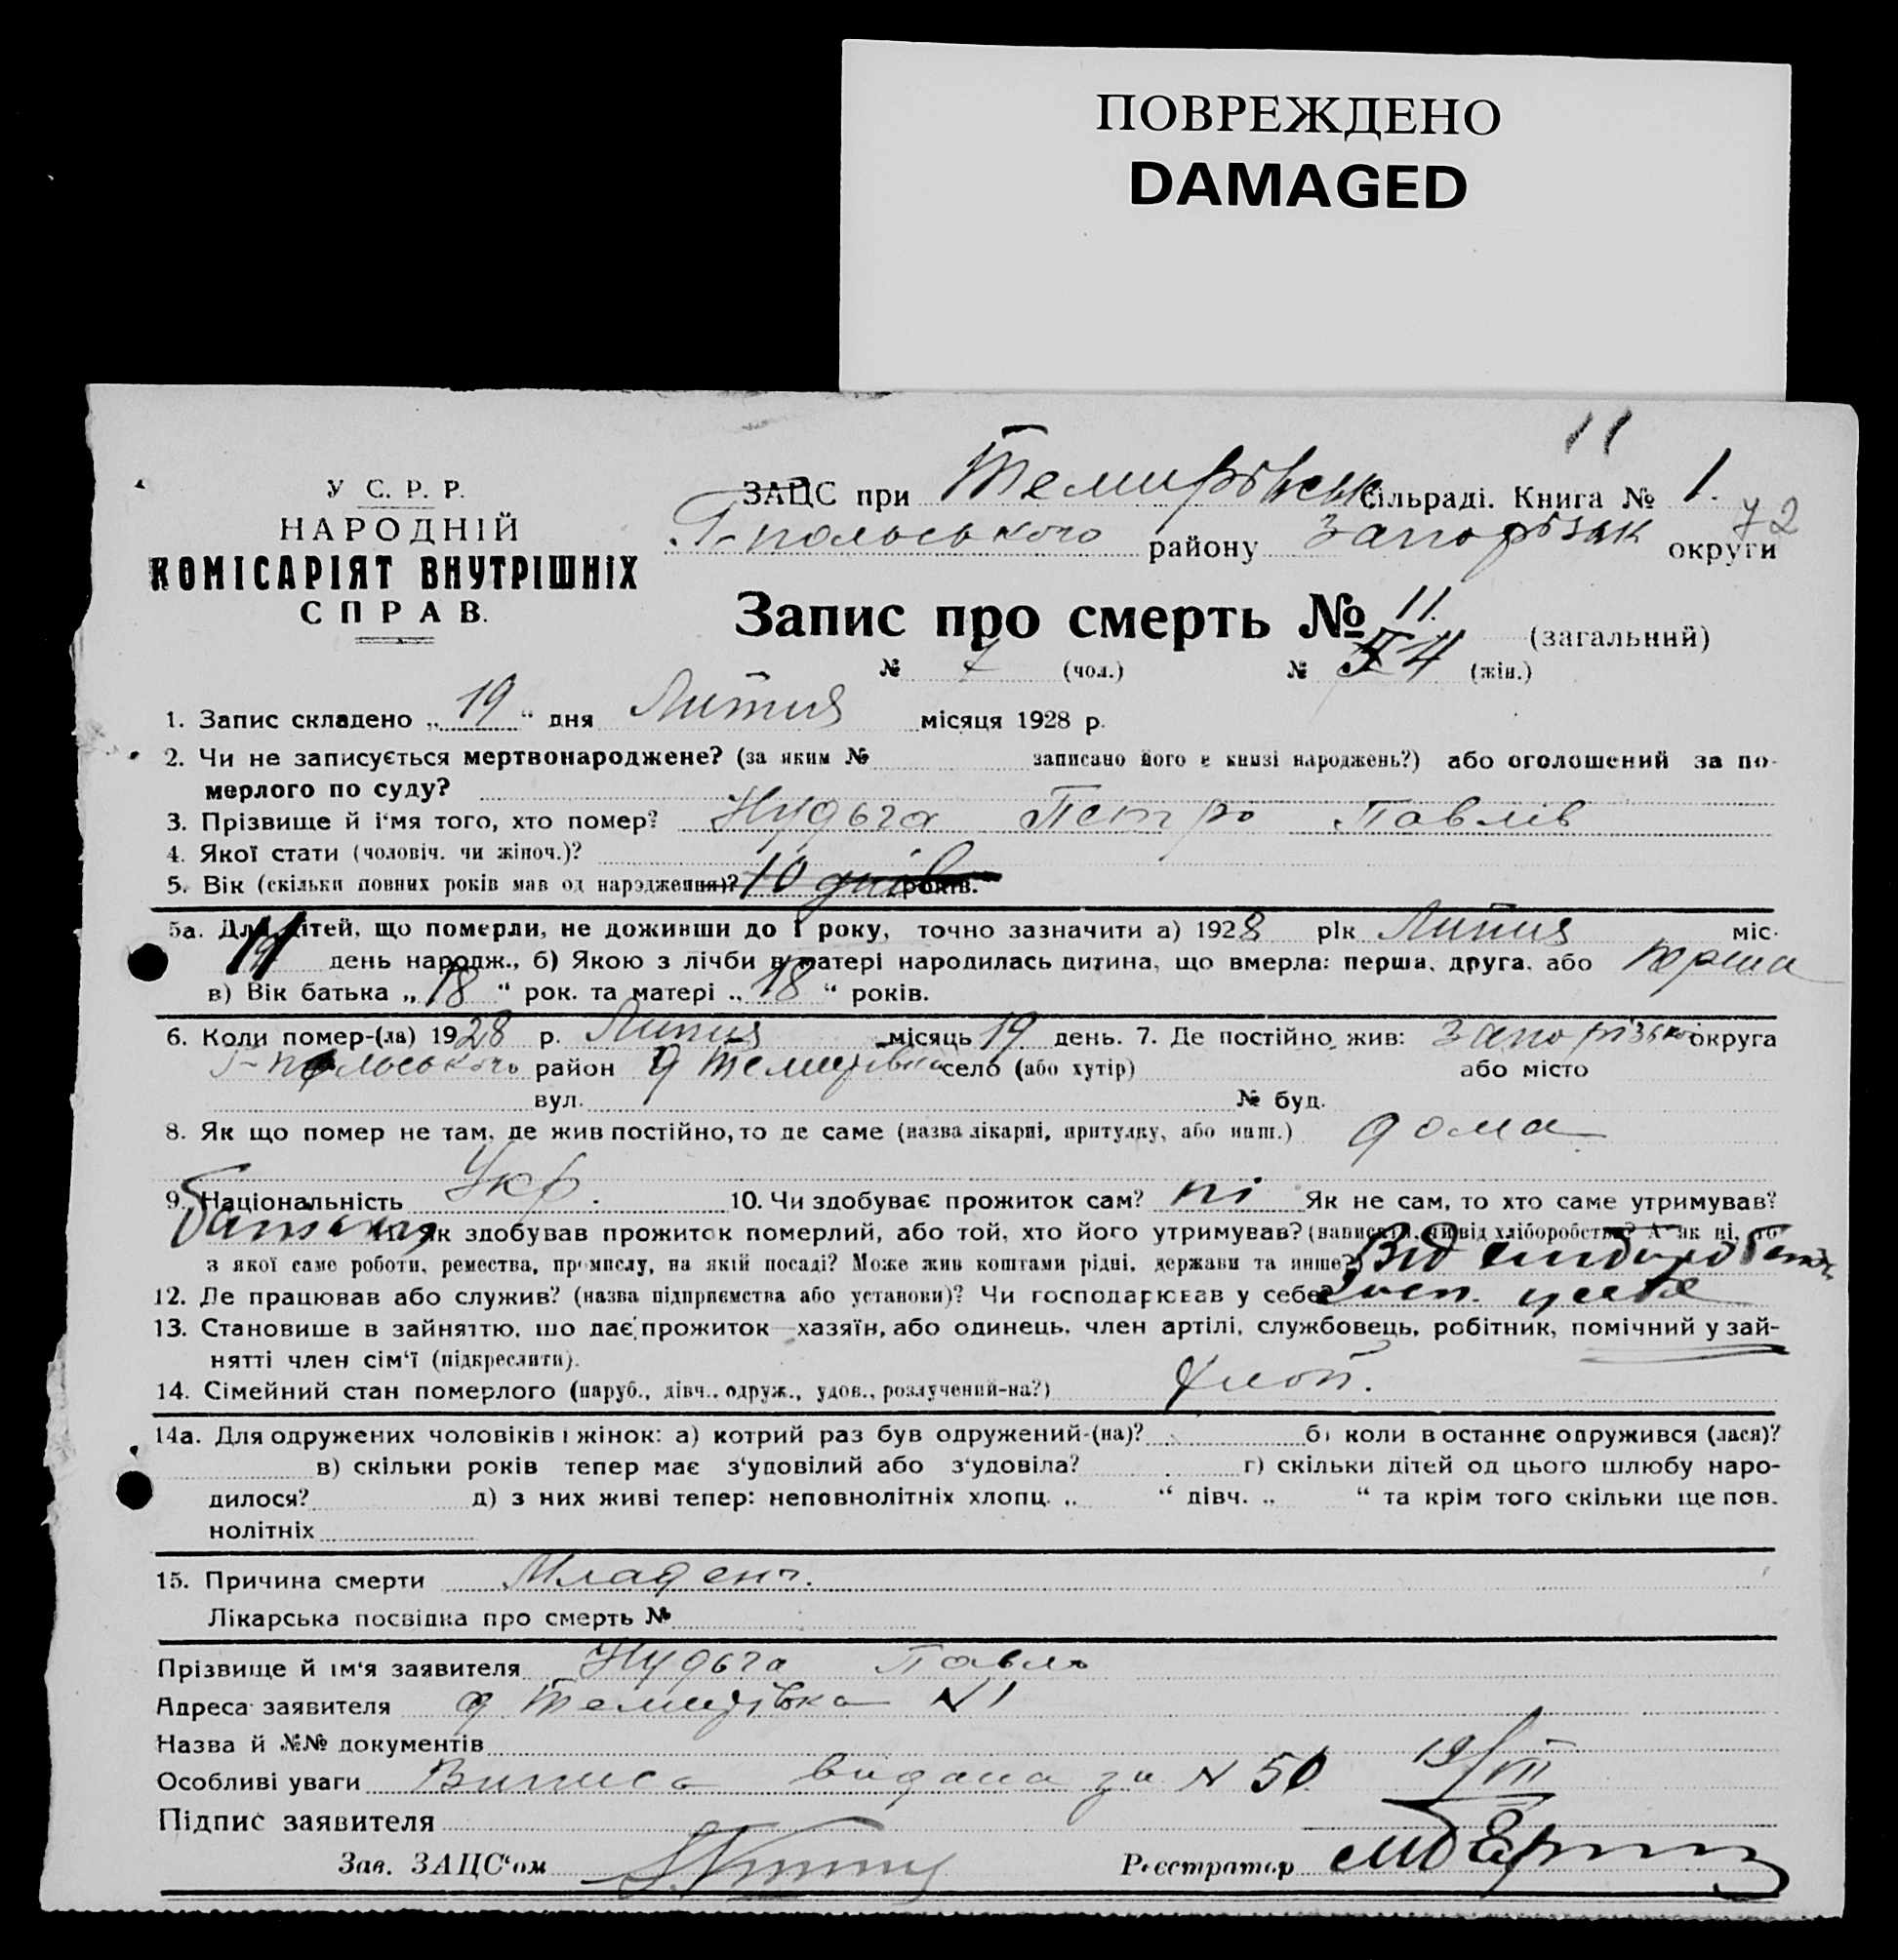 ПОВРЕЖДЕНО
DAMAGED
11
У С. Р. Р.
НАРОДНІЙ
КОМІСАРІЯТ ВНУТРІШНІХ
СПРАВ.
ЗАЦС при Темирівськ Сільраді. Книга № 1.
72
Г-польського району Запорізьк округи
Запис про смерть № 11. (загальний)
№ 7 (чол.) № 4 (жін.)
1. Запис складено „ 19 “ дня Липня місяця 1928 р.
2. Чи не записується мертвонароджене? (за яким № записано його в книзі народжень?) або оголошений за по-
мерлого по суду?
3. Прізвище й і‘мя того, хто помер? Нудьга Петро Павлів
4. Якої статі (чоловіч. чи жіноч.)?
5. Вік (скільки повних років мав од народження)? 10 днів років.
5а. Для дітей, що померли, не доживши до 1 року, точно зазначити а) 1928 рік Липня міс.
день народж., б) Якою з лічби в матері народилась дитина, що вмерла: перша, друга, або перша
в) Вік батька „ 18 “ рок. та матері „ 18 “ років.
6. Коли помер-(ла) 1928 р. Липня місяць 19 день. 7. Де постійно жив: Запорізько округа
Г-польського район д Темирівка село (або хутір) або місто
вул. № буд.
8. Як що помер не там, де жив постійно, то де саме (назва лікарні, притулку, або инш.) дома
9. Національність Укр. 10. Чи здобуває прожиток сам? ні Як не сам, то хто саме утримував?
Як здобував прожиток померлий, або той, хто його утримував? (написати, чи від хліборобства? А як ні, то
з якої саме роботи, ремества, промислу, на якій посаді? Може жив коштами рідні, держави та инше?) Від
12. Де працював або служив? (назва підприємства або установи)? Чи господарював у себе? Госп. у себе
13. Становище в зайняттю, що дає прожиток—хазяїн, або одинець, член артілі, службовець, робітник, помічний у зай-
нятті член сім‘ї (підкреслити).
14. Сімейний стан померлого (паруб., дівч., одруж., удов., розлучений-на?) Хлоп.
14а. Для одружених чоловіків і жінок: а) котрий раз був одружений-(на)? б) коли в останнє одружився (лася)?
в) скільки років тепер має з‘удовілий або з‘удовіла? г) скільки дітей од цього шлюбу наро-
дилося? д) з них живі тепер: неповнолітніх хлопц. „ “ дівч. „ “ та крім того скільки ще пов.
нолітніх
15. Причина смерти Младенч.
Лікарська посвідка про смерть №
Прізвище й ім‘я заявителя Нудьга Павло
Адреса заявителя д Темирівка N 1
Назва й №№ документів
Особливі уваги Випись видана за N 50. 19/VII
Підпис заявителя
Зав. ЗАЦС‘ом Реєстратор